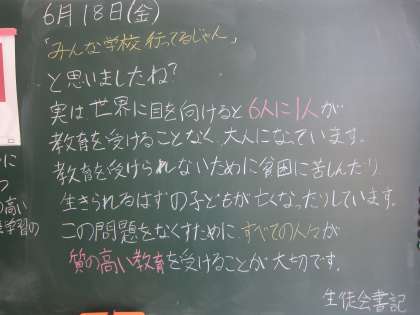 6月18日(金)
「みんな学校行ってるじゃん」
と思いましたね?
実は世界に目を向けると6人に1人が
教育を受けることなく大人になっています。
教育を受けられないために貧困に苦しんだり
生きられるはずの子どもが亡くなったりしています。
この問題をなくすためにすべての人々が
質の高い教育を受けることが大切です。
生徒会書記
に
つ
の高い
学習の